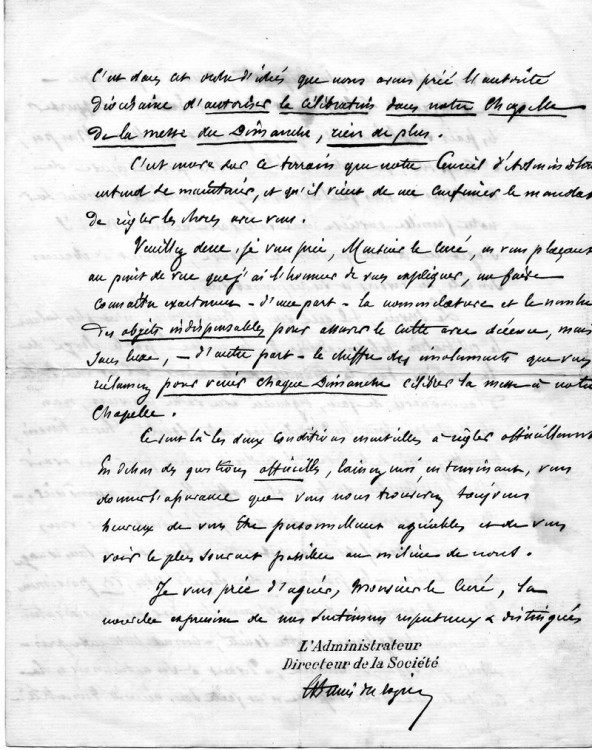 C'est dans cet ordre d'idées que nous avons prié l'autorité
diocésaine d'autoriser la célébration dans notre Chapelle
de la messe du Dimanche, rien de plus.
C'est encore sur ce terrain que notre Conseil d'Administration
entend se maintenir, et qu'il vient de me confirmer le mandat
de régler les choses avec vous.
Veuillez donc, je vous prie, Monsieur le Curé, en vous plaçant
au point de vue que j'ai l'honneur de vous expliquer, me faire
connaître exactement - d'une part - la nomenclature et le nombre
des objets indispensables pour assurer le culte avec décence, mais
sans luxe, - d'autre part - le chiffre des émoluments que vous
réclamez pour venir chaque Dimanche célébrer la messe à notre
Chapelle.
Ce sont là les deux conditions essentielles à régler officiellement
En dehors des questions officielles, laissez moi, en terminant, vous
donner l'assurance que vous nous trouverez toujours
heureux de vous être personnellement agréables et de vous
voir le plus souvent possible au milieu de nous.
Je vous prie d'agréer, Monsieur le Curé, la
nouvelle expression de nos sentiments respectueux & distingués
L'Administrateur
Directeur de la Société